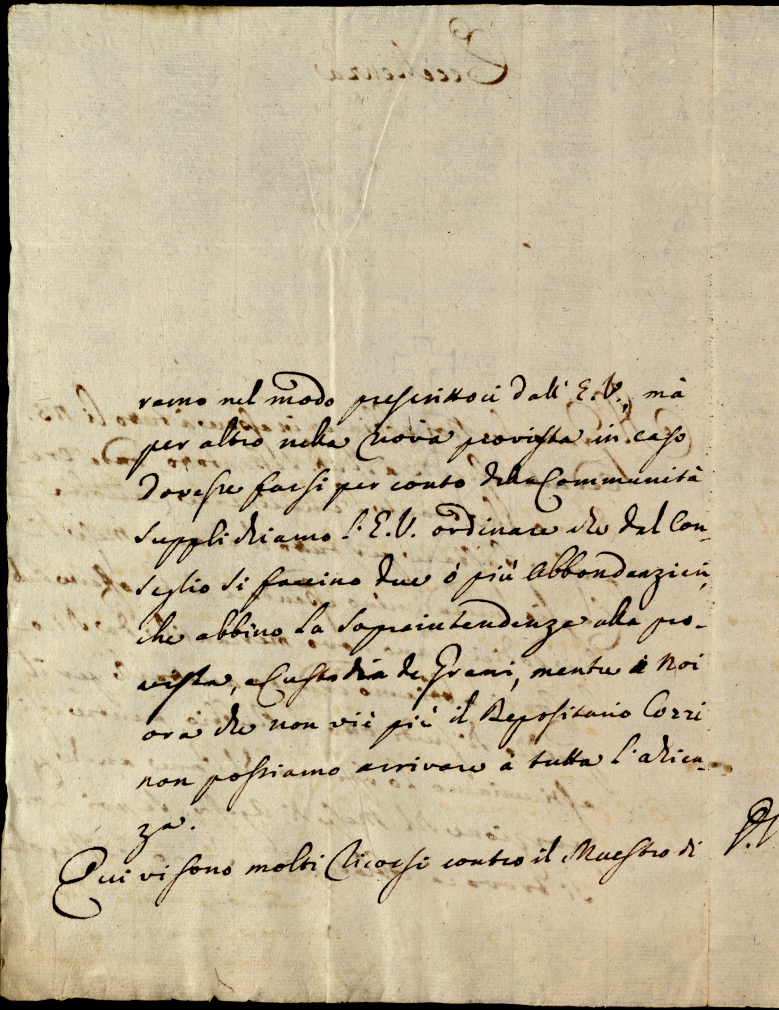 remo nel modo prescrittoci dall' E. V., mà
per altro nella nova provista in caso
dovesse farsi per conto della Communità
supplichiamo l'E. V. ordinare che dal Con-
seglio si faccino due ò più Abbondanzieri,
che abbino la sopraintendenza alla pro-
vista, e Custodia de Grani, mentre à noi
ora che non vi è più il Depositario Cozzi
non possiamo arrivare à tutta l'adien-
za.
Qui vi sono molti ricorsi contro il Maestro di